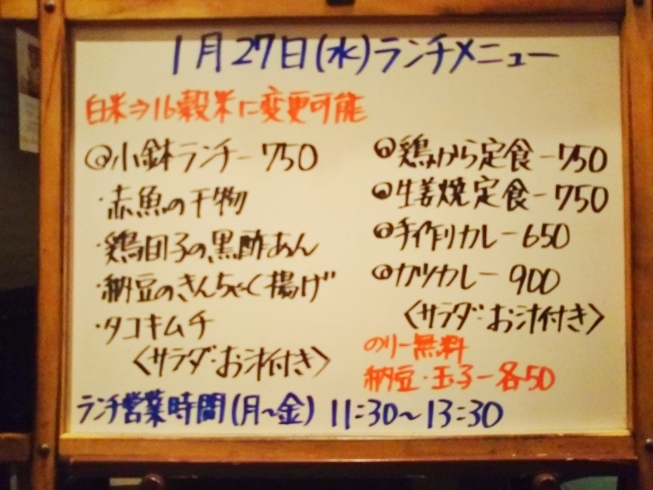 1月27日(水)ランチメニュー
白米⇒16穀米に変更可能
◎小鉢ランチー750
・赤魚の干物
・鶏団子の黒酢あん
・納豆のきんちゃく揚げ
・タコキムチ
〈サラダ・お汁付き〉
◎鶏から定食ー750
◎生姜焼定食ー750
◎手作りカレー650
◎カツカレー900
〈サラダ・お汁付き〉
のりー無料
納豆・玉子ー各50
ランチ営業時間(月〜金) 11:30〜13:30